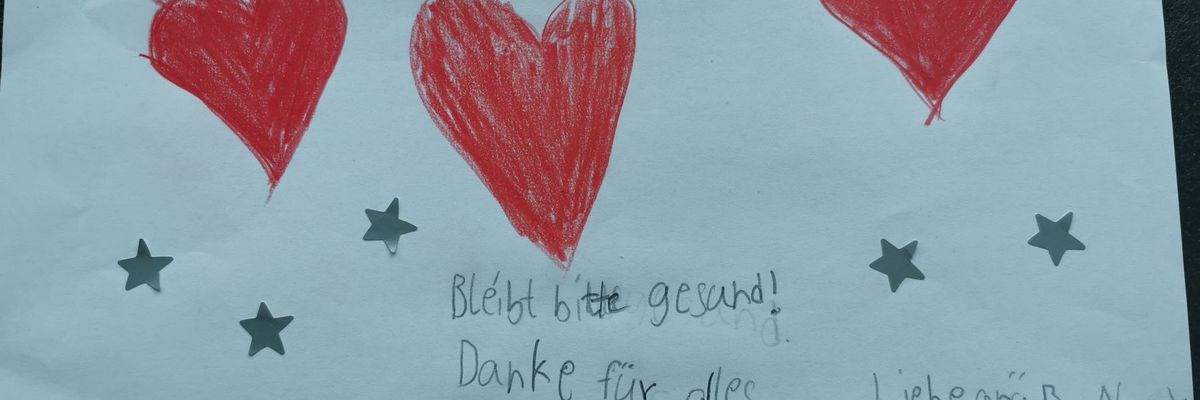 Bleibt bitte gesund!
Danke für alles